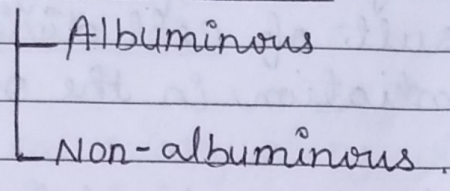 Albuminous
Non-albuminous.